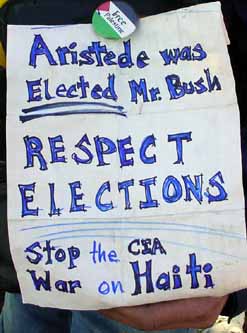 Free
Palestine
Aristede was
Elected Mr. Bush
RESPECT
ELECTIONS
Stop the CIA
War on Haiti